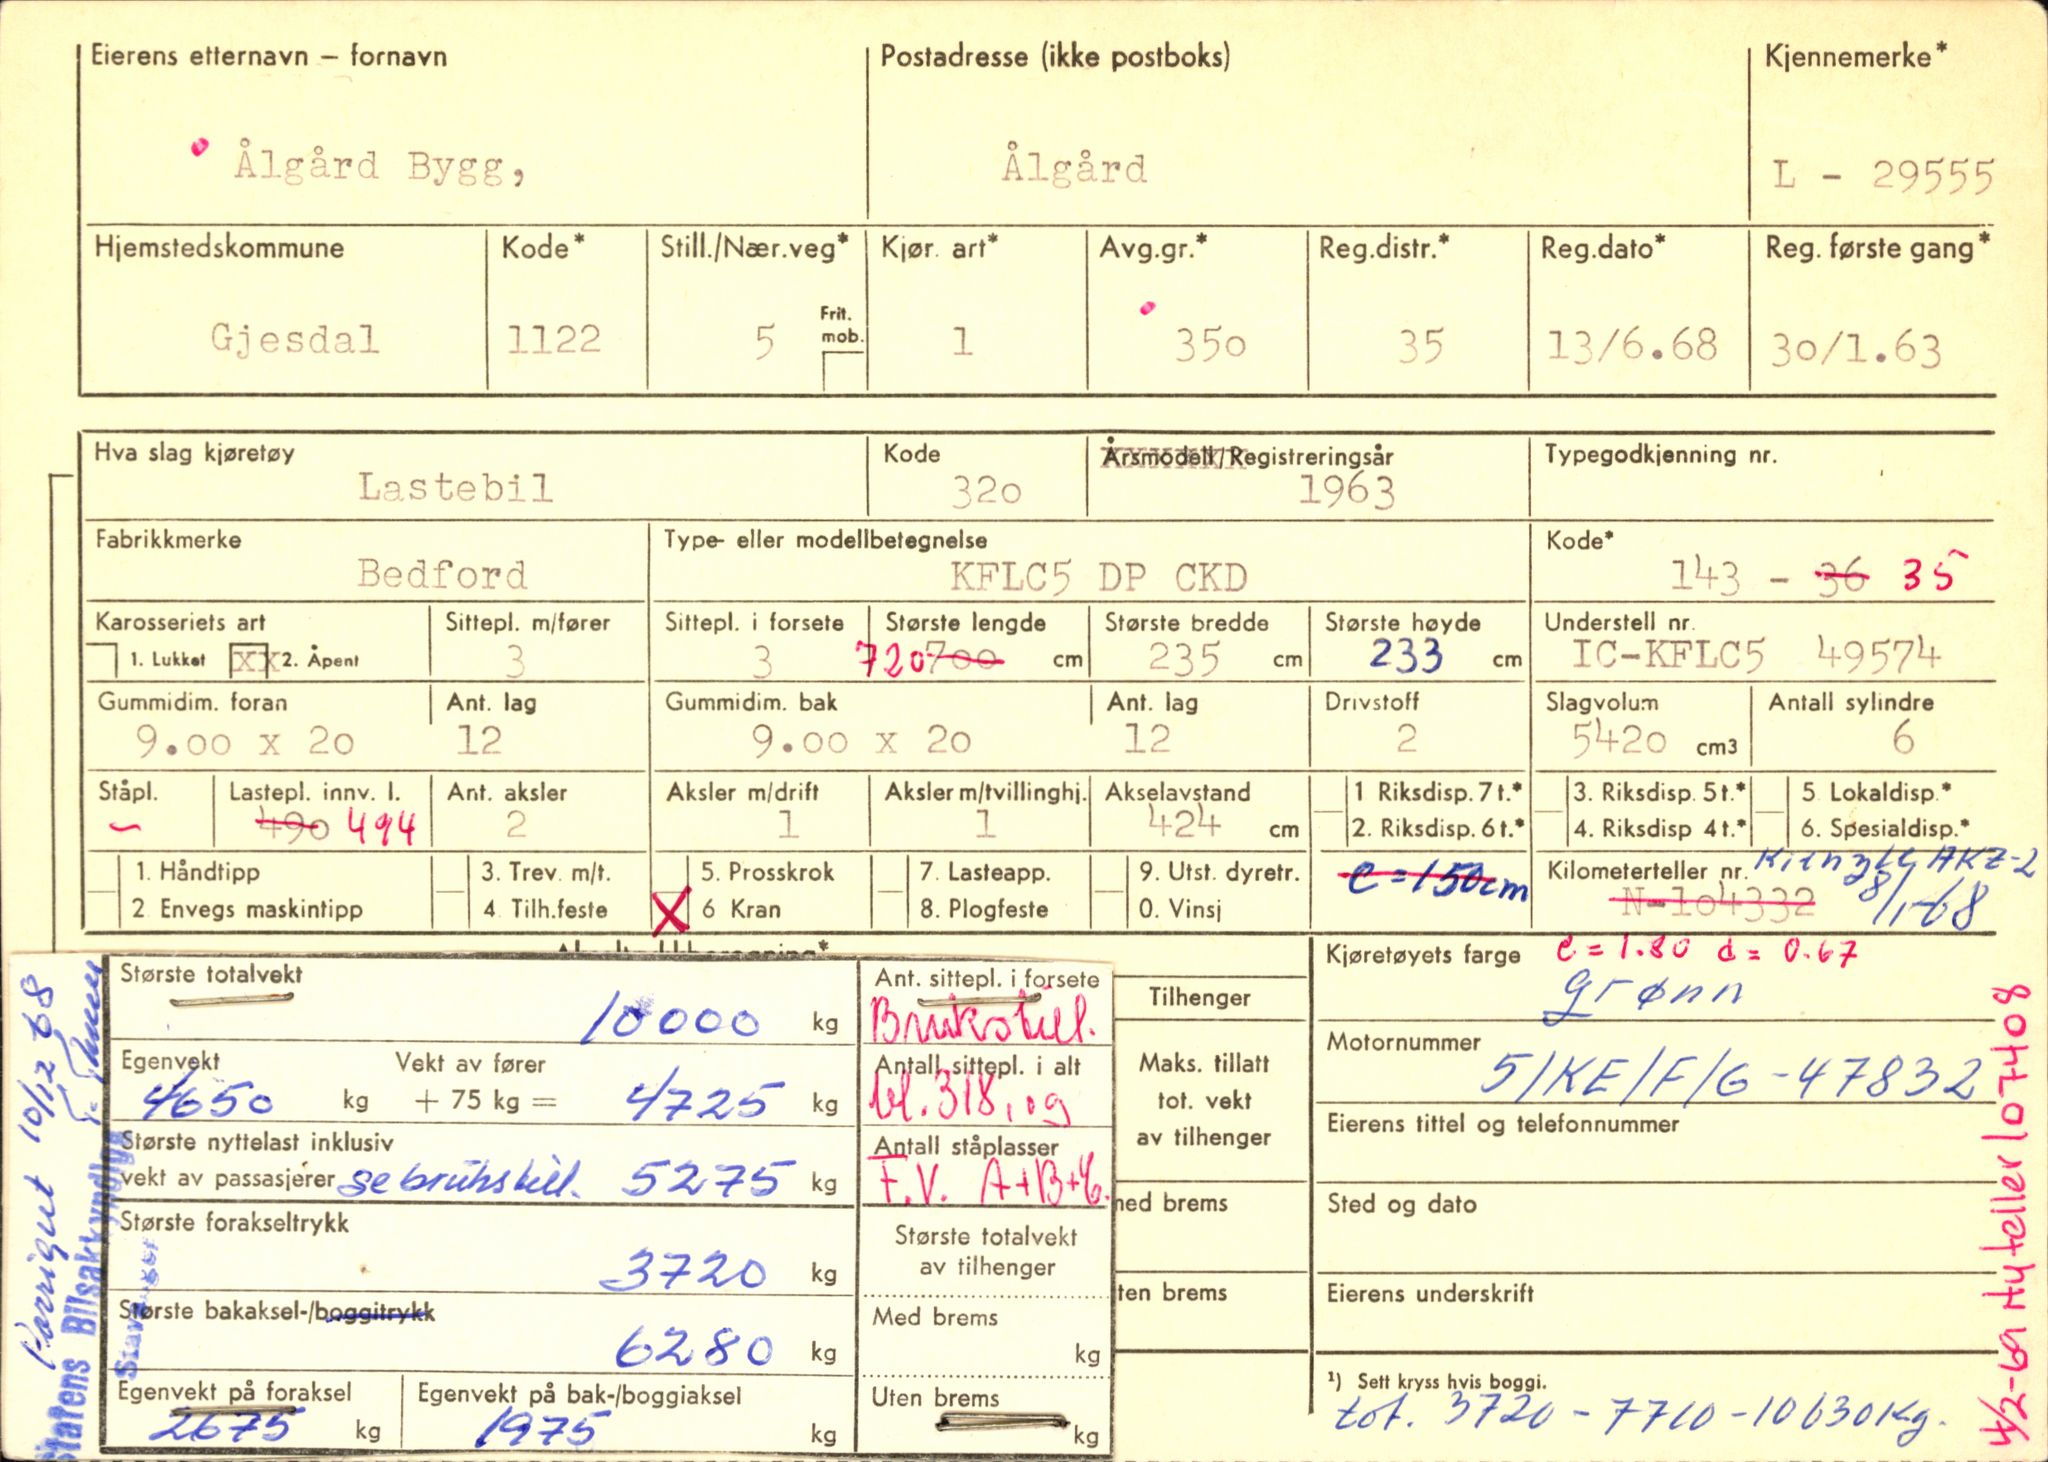 Eierens etternavn – fornavn
Postadresse (ikke postboks)
Kjennemerke*
Ålgård Bygg,
Ålgård
L - 29555
Hjemstedskommune
Kode*
Still./Nær.veg*
Kjør. art*
Avg.gr.*
Reg.distr.*
Reg.dato*
Reg. første gang*
Gjesdal
1122
5
Frit. mob.
1
350
35
13/6.68
30/1.63
Hva slag kjøretøy
Kode
Årsmodell/Registreringsår
Typegodkjenning nr.
Lastebil
320
1963
Fabrikkmerke
Type- eller modellbetegnelse
Kode*
Bedford
KFLC5 DP CKD
143 - 36 35
Karosseriets art
Sittepl. m/fører
Sittepl. i forsete
Største lengde
Største bredde
Største høyde
Understell nr.
1. Lukket
xx 2. Åpent
3
3
720 700 cm
235 cm
233 cm
IC-KFLC5 49574
Gummidim. foran
Ant. lag
Gummidim. bak
Ant. lag
Drivstoff
Slagvolum
Antall sylindre
9.00 x 20
12
9.00 x 20
12
2
5420 cm3
6
Ståpl.
Lastepl. innv. l.
Ant. aksler
Aksler m/drift
Aksler m/tvillinghj.
Akselavstand
1 Riksdisp. 7 t.*
3. Riksdisp. 5 t.*
5 Lokaldisp.*
–
490 494
2
1
1
424 cm
2. Riksdisp. 6 t.*
4. Riksdisp 4 t.*
6. Spesialdisp.*
1. Håndtipp
3. Trev. m/t.
5. Prosskrok
7. Lasteapp.
9. Utst. dyretr.
e = 150 cm
Kilometerteller nr. Kienzle AKZ-2
2. Envegs maskintipp
4. Tilh.feste
X 6 Kran
8. Plogfeste
0. Vinsj
N-104332
8/1-68
Største totalvekt
10000 kg
Ant. sittepl. i forsete
Brukstill.
Egenvekt
Vekt av fører
4650 kg + 75 kg = 4725 kg
Antall sittepl. i alt
bl. 318, og
Største nyttelast inklusiv
vekt av passasjerer se brukstill. 5275 kg
Antall ståplasser
F.V. A+B+C.
Største forakseltrykk
3720 kg
Største totalvekt
av tilhenger
Største bakaksel-/boggitrykk
6280 kg
Med brems
kg
Egenvekt på foraksel
2675 kg
Egenvekt på bak-/boggiaksel
1975 kg
Uten brems
kg
Tilhenger
Maks. tillatt
tot. vekt
av tilhenger
ned brems
ten brems
Kjøretøyets farge e = 1.80 d = 0.67
grønn
Motornummer
51/KE/F/G-47832
Eierens tittel og telefonnummer
Sted og dato
Eierens underskrift
¹) Sett kryss hvis boggi.
tot. 3720 - 7710 - 10630 kg.
4/2-69 Ny teller 107408
Korrigert 10/12 68
Statens Bilsakkyndige
Stavanger